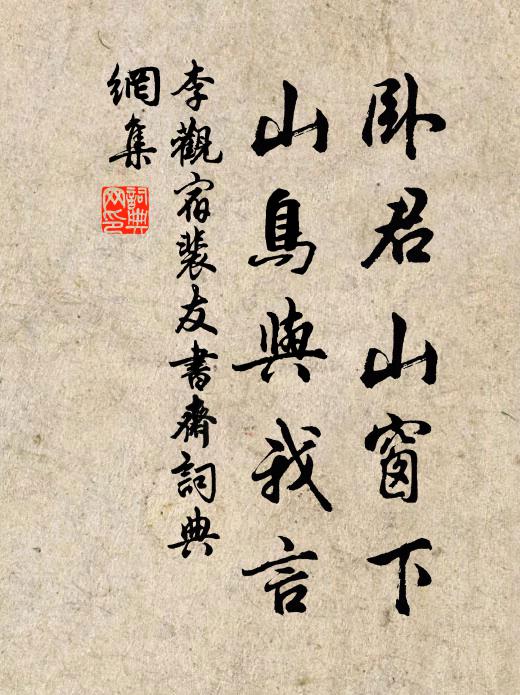 卧君山窗下
山鳥與我言
李觀宿裴友書齋詞典
網集
詞典
网印